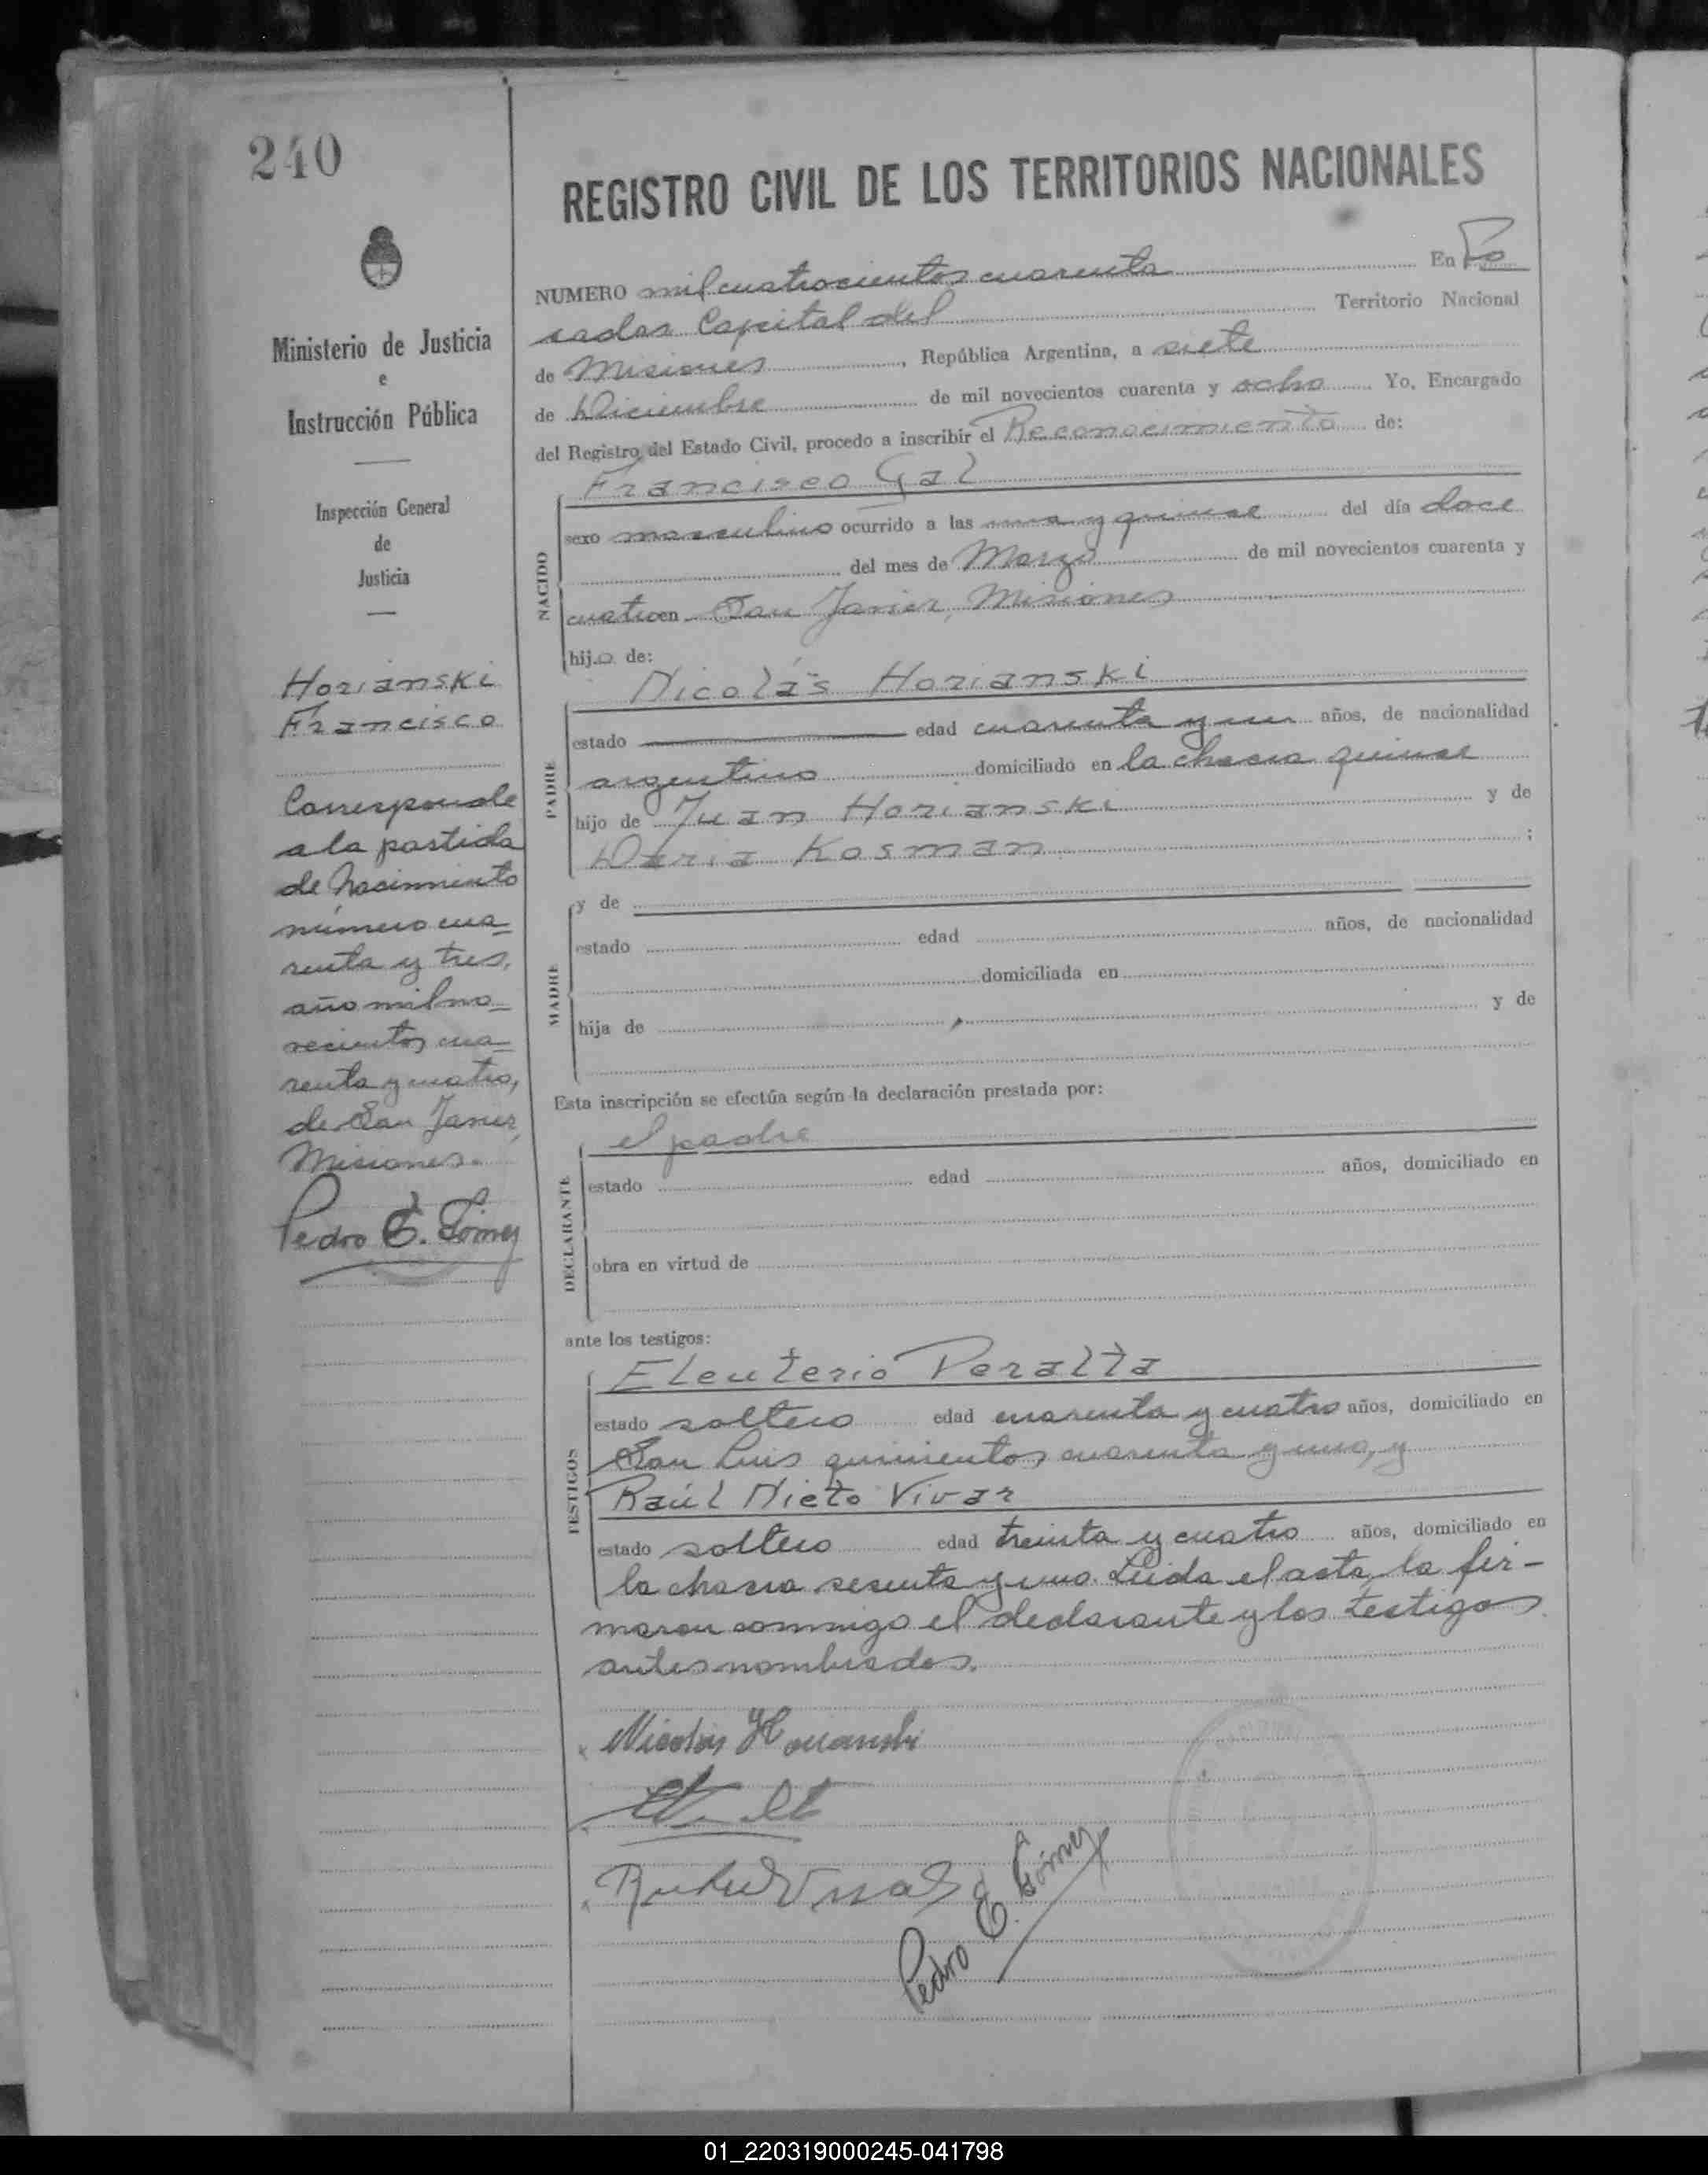 240
Ministerio de Justicia
e
Instrucción Pública
Inspección General
de
Justicia
Horianski
Francisco
Corresponde
a la partida
de Nacimiento
número cua-
renta y tres,
año mil no-
vecientos cua-
renta y cuatro,
de San Javier,
Misiones.
Pedro E. Gómez
REGISTRO CIVIL DE LOS TERRITORIOS NACIONALES
NUMERO mil cuatrocientos cuarenta En Po
sadas Capital del Territorio Nacional
de Misiones, República Argentina, a siete
de Diciembre de mil novecientos cuarenta y ocho Yo, Encargado
del Registro del Estado Civil, procedo a inscribir el Reconocimiento de:
Francisco Gal
NACIDO
sexo masculino ocurrido a las una y quince del día doce
del mes de Marzo de mil novecientos cuarenta y
cuatro en San Javier, Misiones
hijo de:
Nicolás Horianski
PADRE
estado edad cuarenta y un años, de nacionalidad
argentino domiciliado en la chacra quince
hijo de Juan Horianski y de
Daria Kosman ;
MADRE
y de
estado edad años, de nacionalidad
domiciliada en
hija de y de
Esta inscripción se efectúa según la declaración prestada por:
DECLARANTE
el padre
estado edad años, domiciliado en
obra en virtud de
ante los testigos:
TESTIGOS
Eleuterio Peralta
estado soltero edad cuarenta y cuatro años, domiciliado en
San Luis quinientos cuarenta y uno, y
Raúl Nieto Vivar
estado soltero edad treinta y cuatro años, domiciliado en
la chacra sesenta y uno. Leida el acta, la fir-
maron conmigo el declarante y los testigos
antes nombrados.
Nicolás Horianski
Pedro E. Gómez
01_220319000245-041798